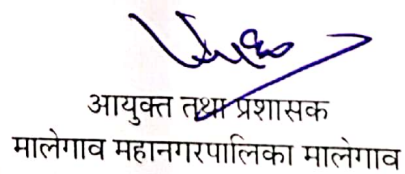 आयुक्त तथा प्रशासक
मालेगाव महानगरपालिका मालेगाव